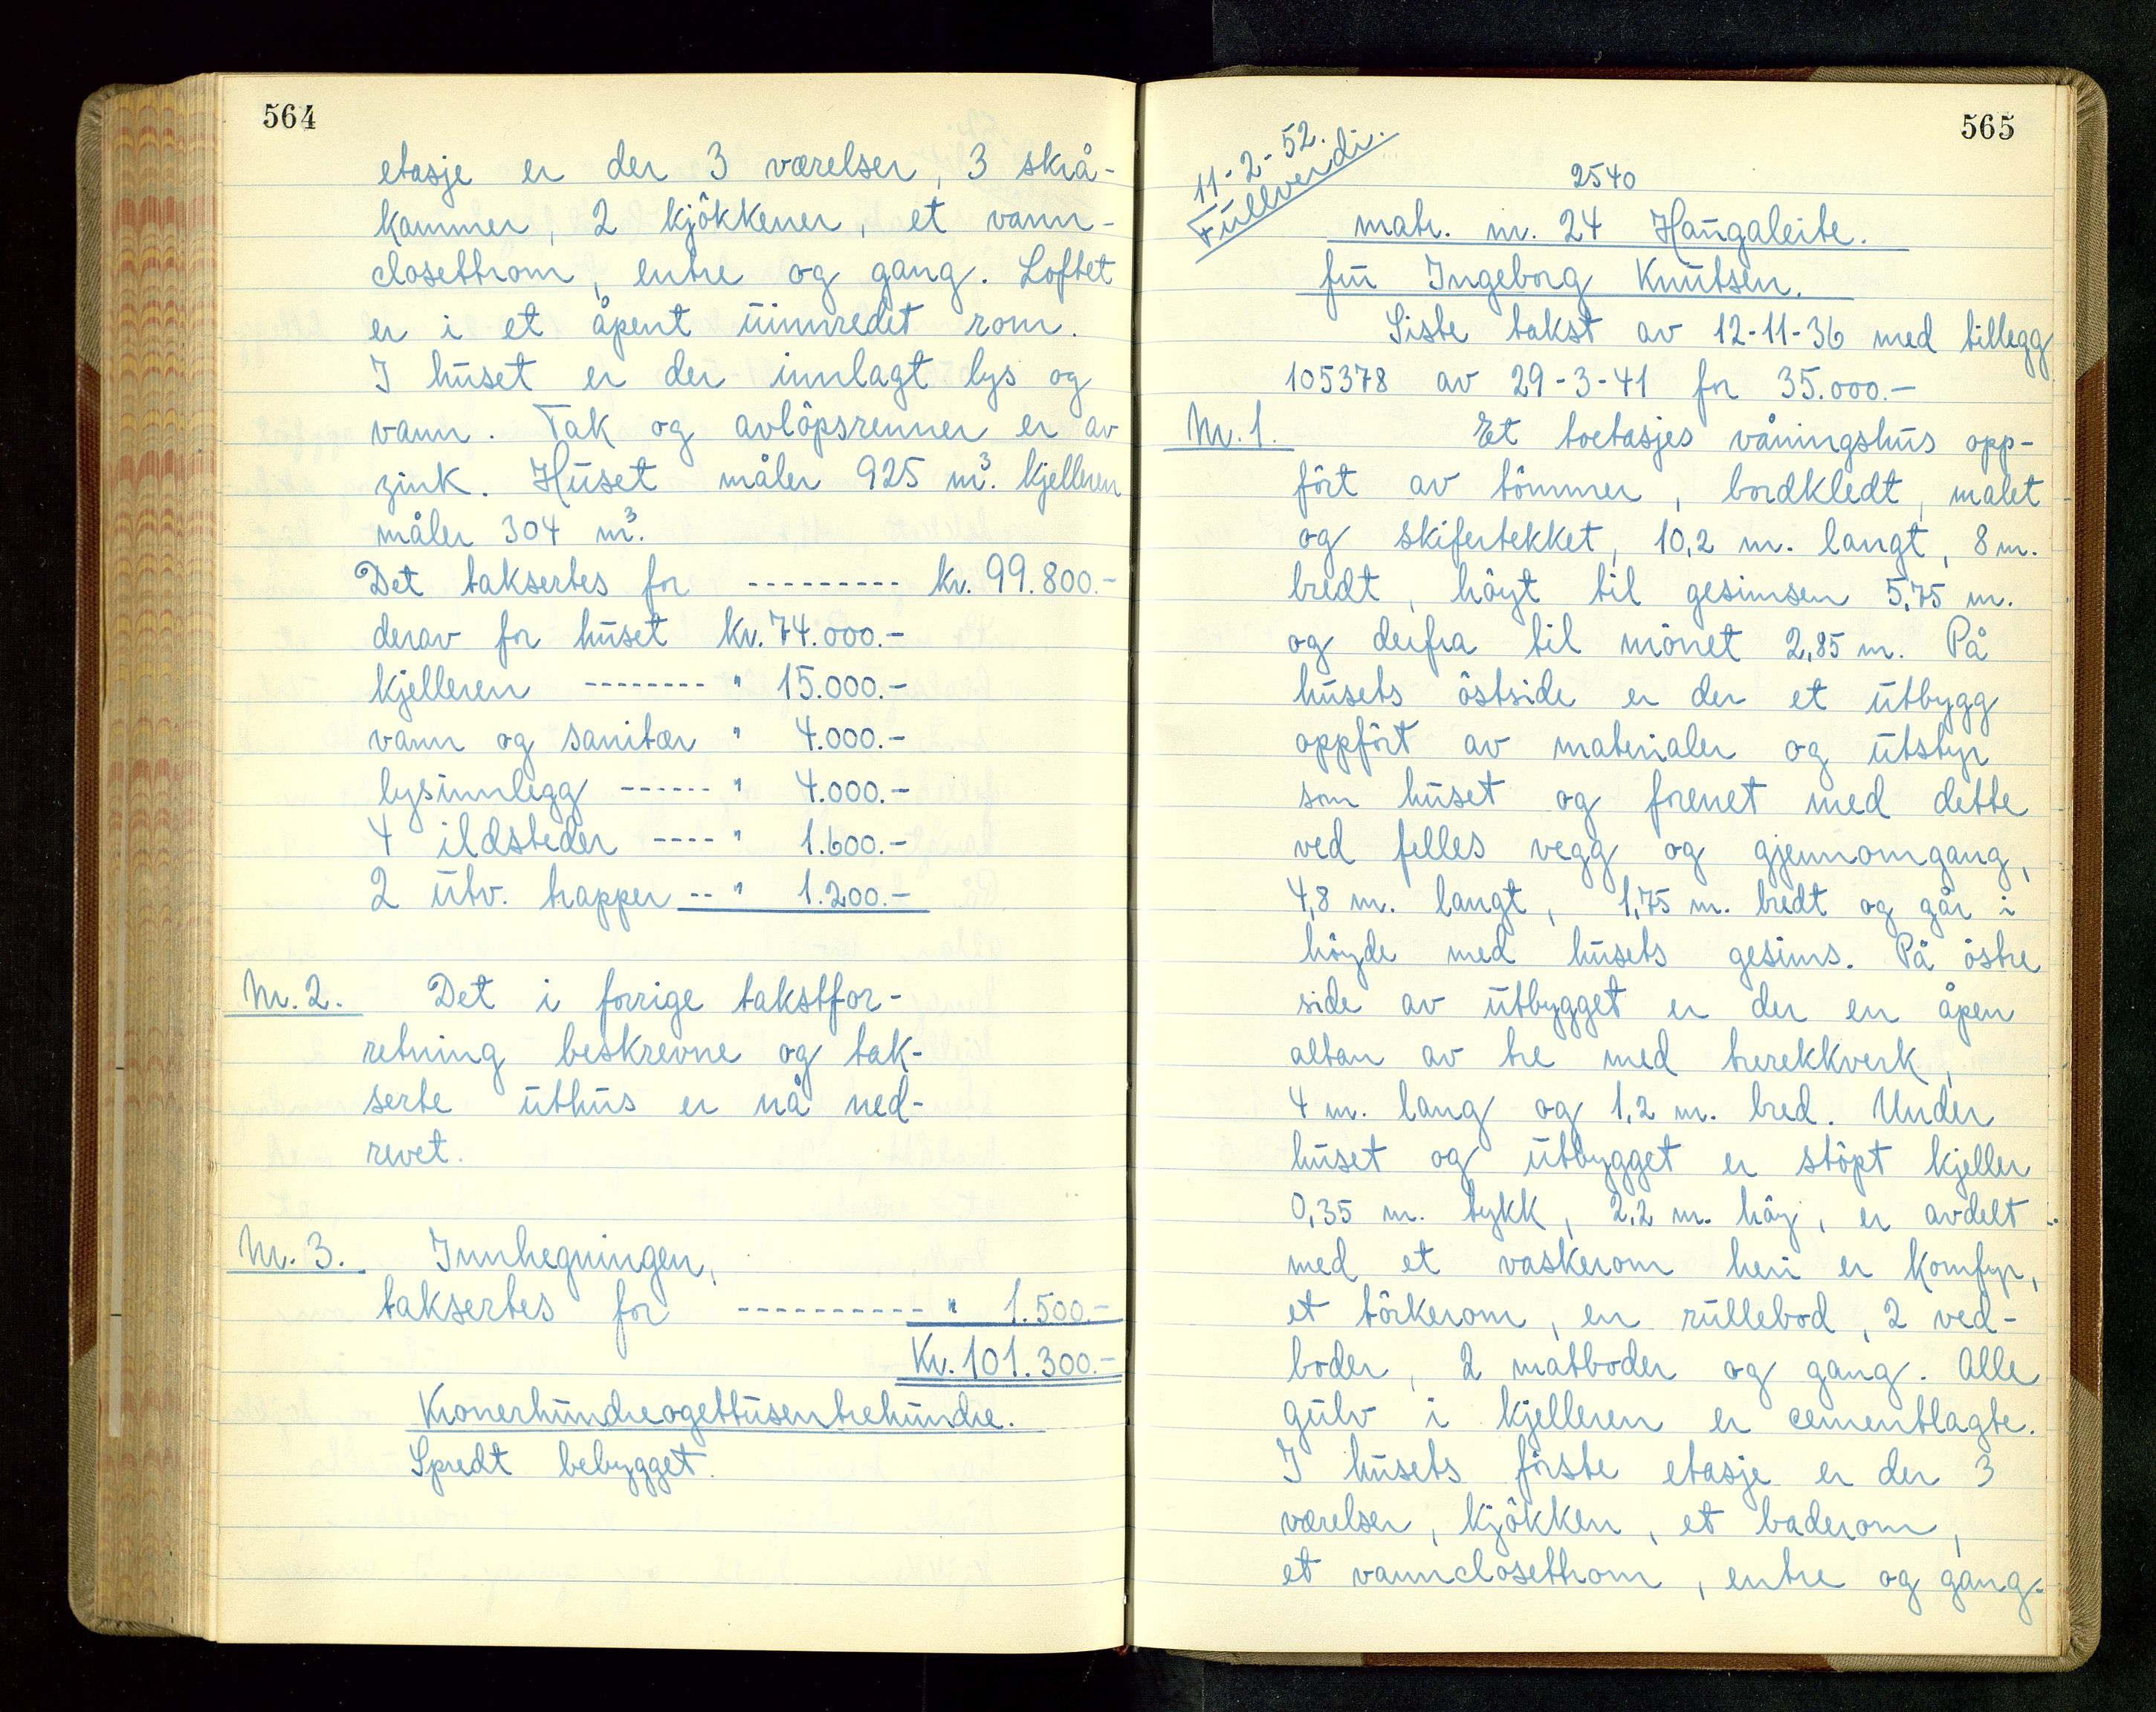 564
etasje er der 3 værelser, 3 skrå-
kammer, 2 kjökkener, et vann-
closettrom, entre og gang. Loftet
er i et åpent uinnredet rom.
I huset er der innlagt lys og
vann. Tak og avlöpsrenner er av
zink. Huset måler 925 m³. kjelleren
måler 304 m³.
Det taksertes for --------- kr. 99.800.-
derav for huset kr. 74.000.-
kjelleren -------- " 15.000.-
vann og sanitær " 4.000.-
lysinnlegg ------ " 4.000.-
4 ildsteder ---- " 1.600.-
2 utv. trapper -- " 1.200.-
Nr. 2. Det i forrige takstfor-
retning beskrevne og tak-
serte uthus er nå ned-
revet.
Nr. 3. Innhegningen,
taksertes for ---------- " 1.500.-
Kr. 101.300.-
Kronerhundreogettusentrehundre.
Spredt bebygget.
565
11-2-52.
Fullverdi.
2540
matr. nr. 24 Haugaleite.
fru Ingeborg Knutsen.
Siste takst av 12-11-36 med tillegg
105378 av 29-3-41 for 35.000.-
Nr. 1. Et toetasjes våningshus opp-
fört av tömmer, bordkledt, malet
og skifertekket, 10,2 m. langt, 8 m.
bredt, höyt til gesimsen 5,75 m.
og derfra til mönet 2,85 m. På
husets östside er der et utbygg
oppfört av materialer og utstyr
som huset og forenet med dette
ved felles vegg og gjennomgang,
4,8 m. langt, 1,75 m. bredt og går i
höyde med husets gesims. På östre
side av utbygget er der en åpen
altan av tre med trerekkverk,
4 m. lang og 1,2 m. bred. Under
huset og utbygget er stöpt kjeller
0,35 m. tykk, 2,2 m. höy, er avdelt
med et vaskerom heri er komfyr,
et törkerom, en rullebod, 2 ved-
boder, 2 matboder og gang. Alle
gulv i kjelleren er cementlagte.
I husets förste etasje er der 3
værelser, kjökken, et baderom,
et vannclosettrom, entre og gang.